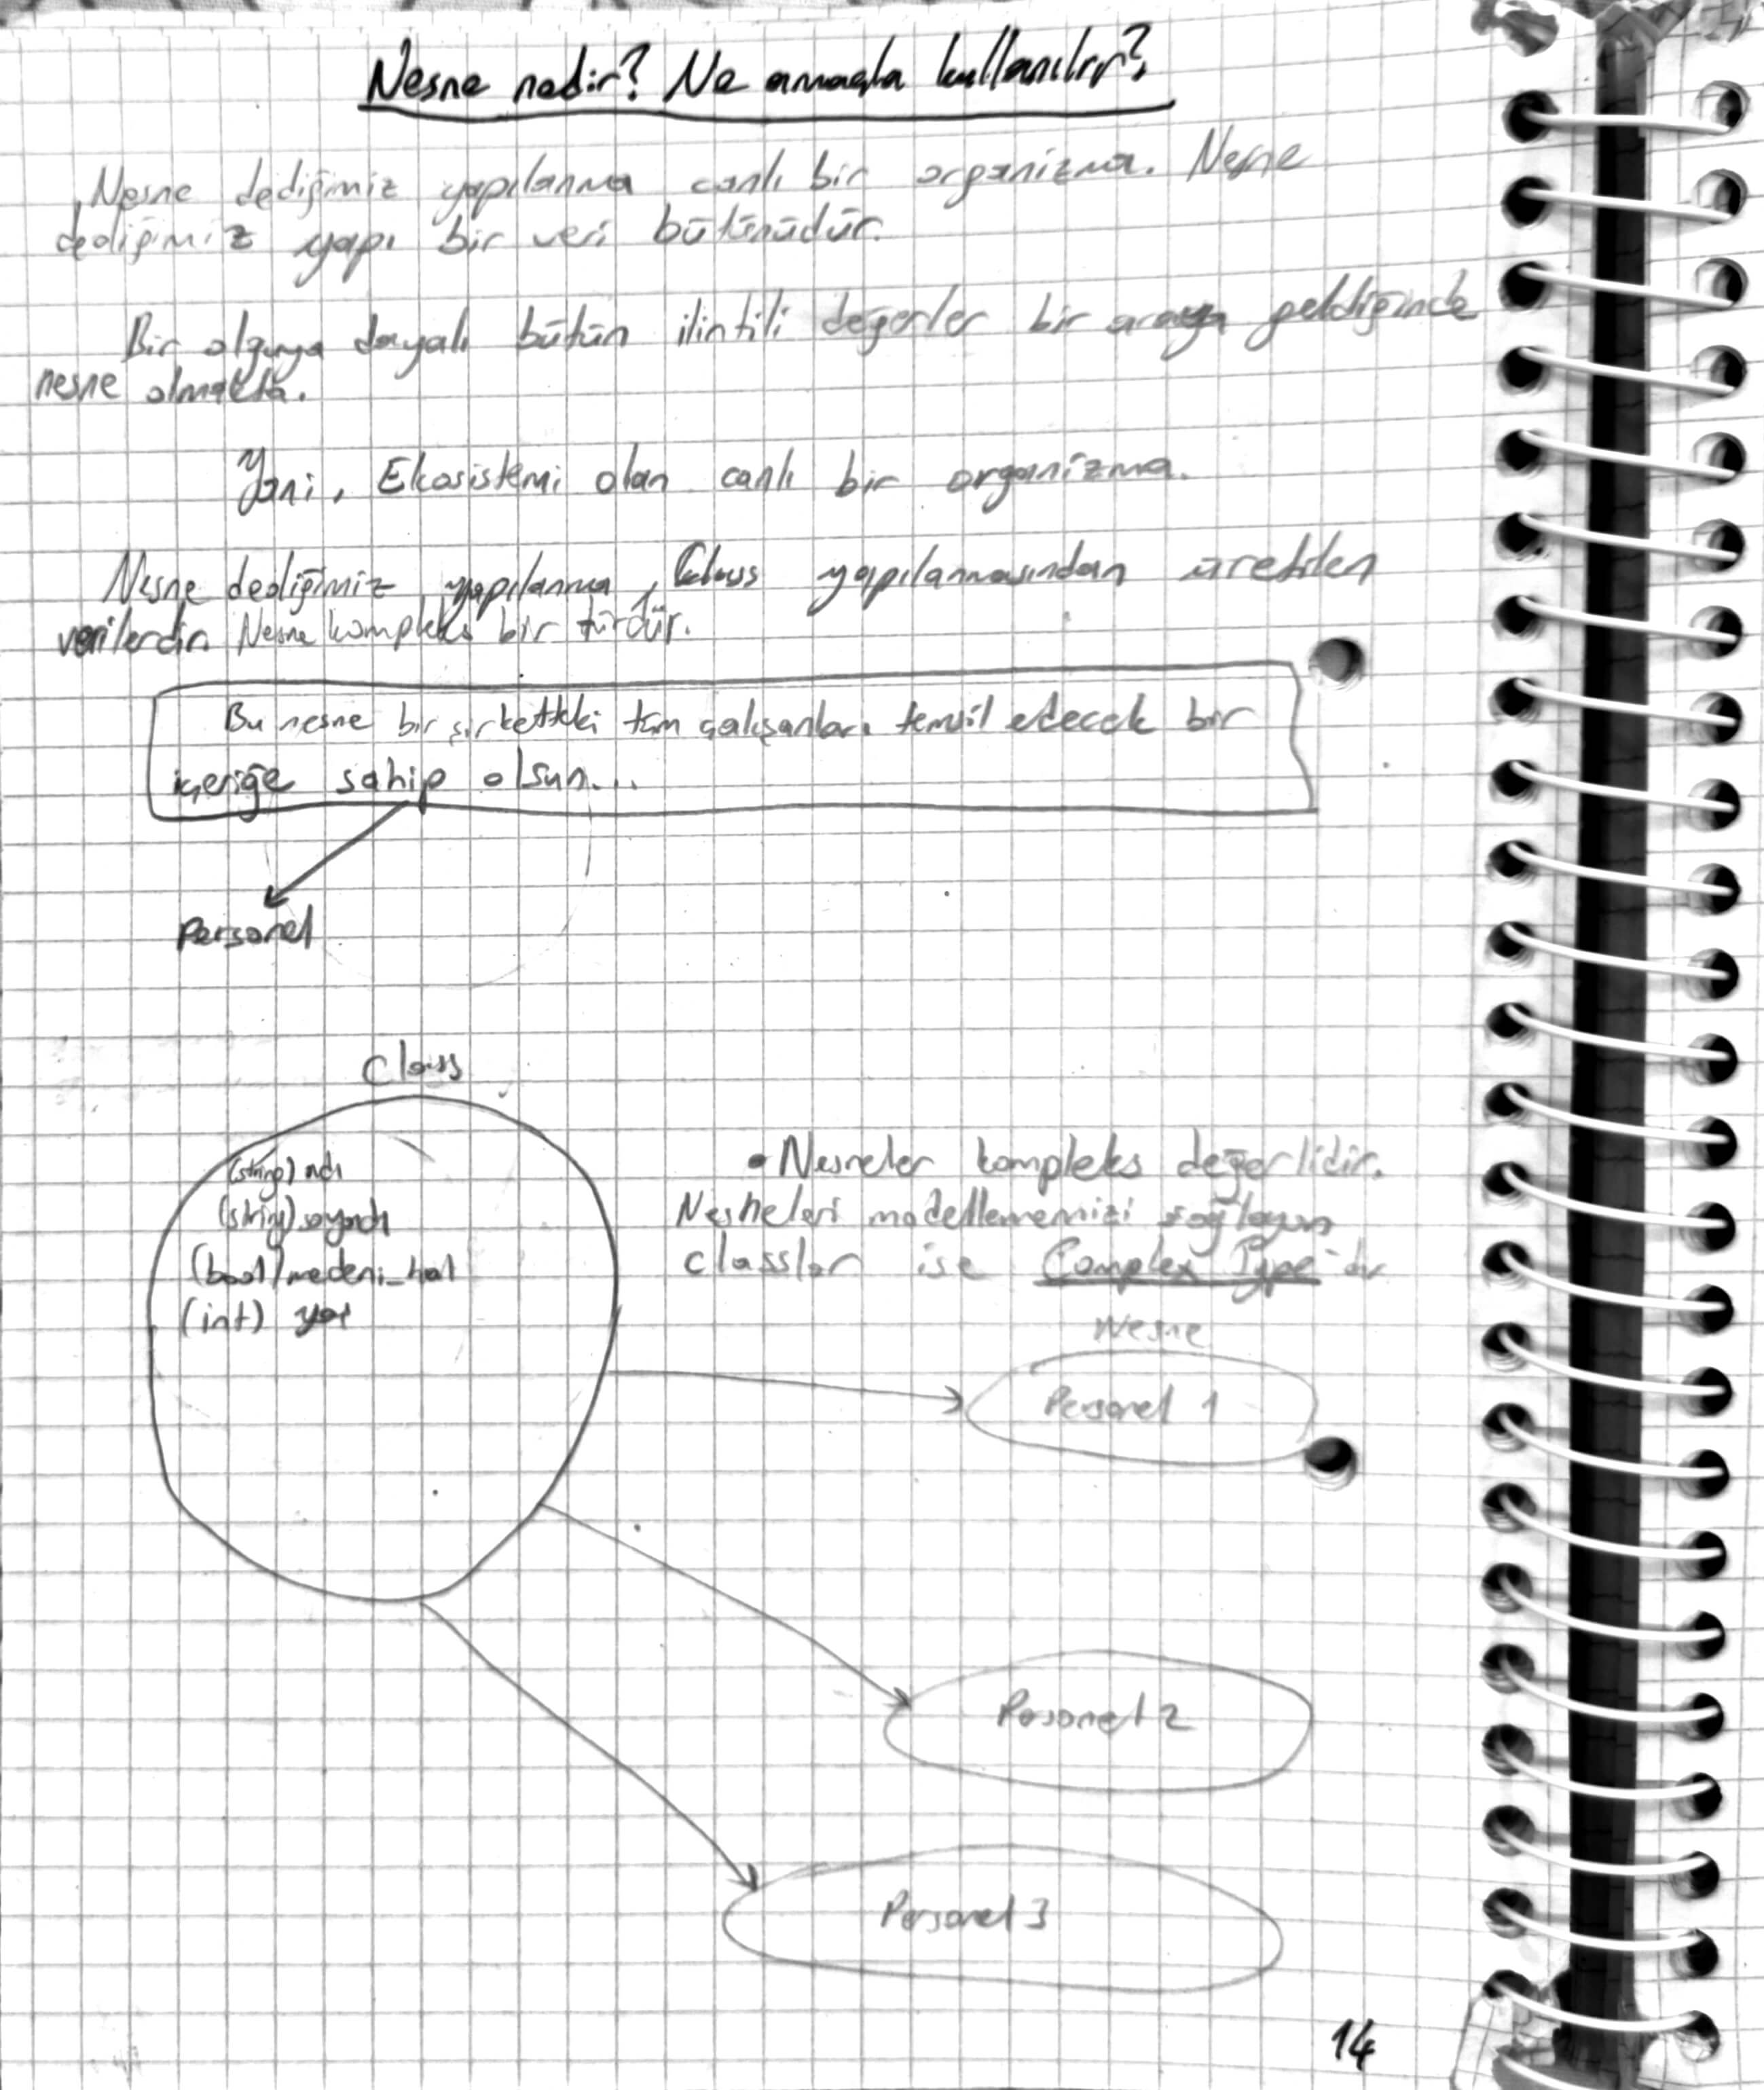 Nesne nedir? Ne amaçla kullanılır?
Nesne dediğimiz yapılanma canlı bir organizma. Nesne
dediğimiz yapı bir veri bütünüdür.
Bir olguya dayalı bütün ilintili değerler bir araya geldiğinde
nesne olmakta.
Yani, Ekosistemi olan canlı bir organizma.
Nesne dediğimiz yapılanma, Class yapılanmasından üretilen
verilerdir. Nesne kompleks bir türdür.
Bu nesne bir şirketteki tüm çalışanları temsil edecek bir
içeriğe sahip olsun...
Personel
Class
(string) adı
(string) soyadı
(bool) medeni_hal
(int) yaş
• Nesneler kompleks değerlidir.
Nesneleri modellememizi sağlayan
classlar ise Complex Type'dır
Nesne
Personel 1
Personel 2
Personel 3
14